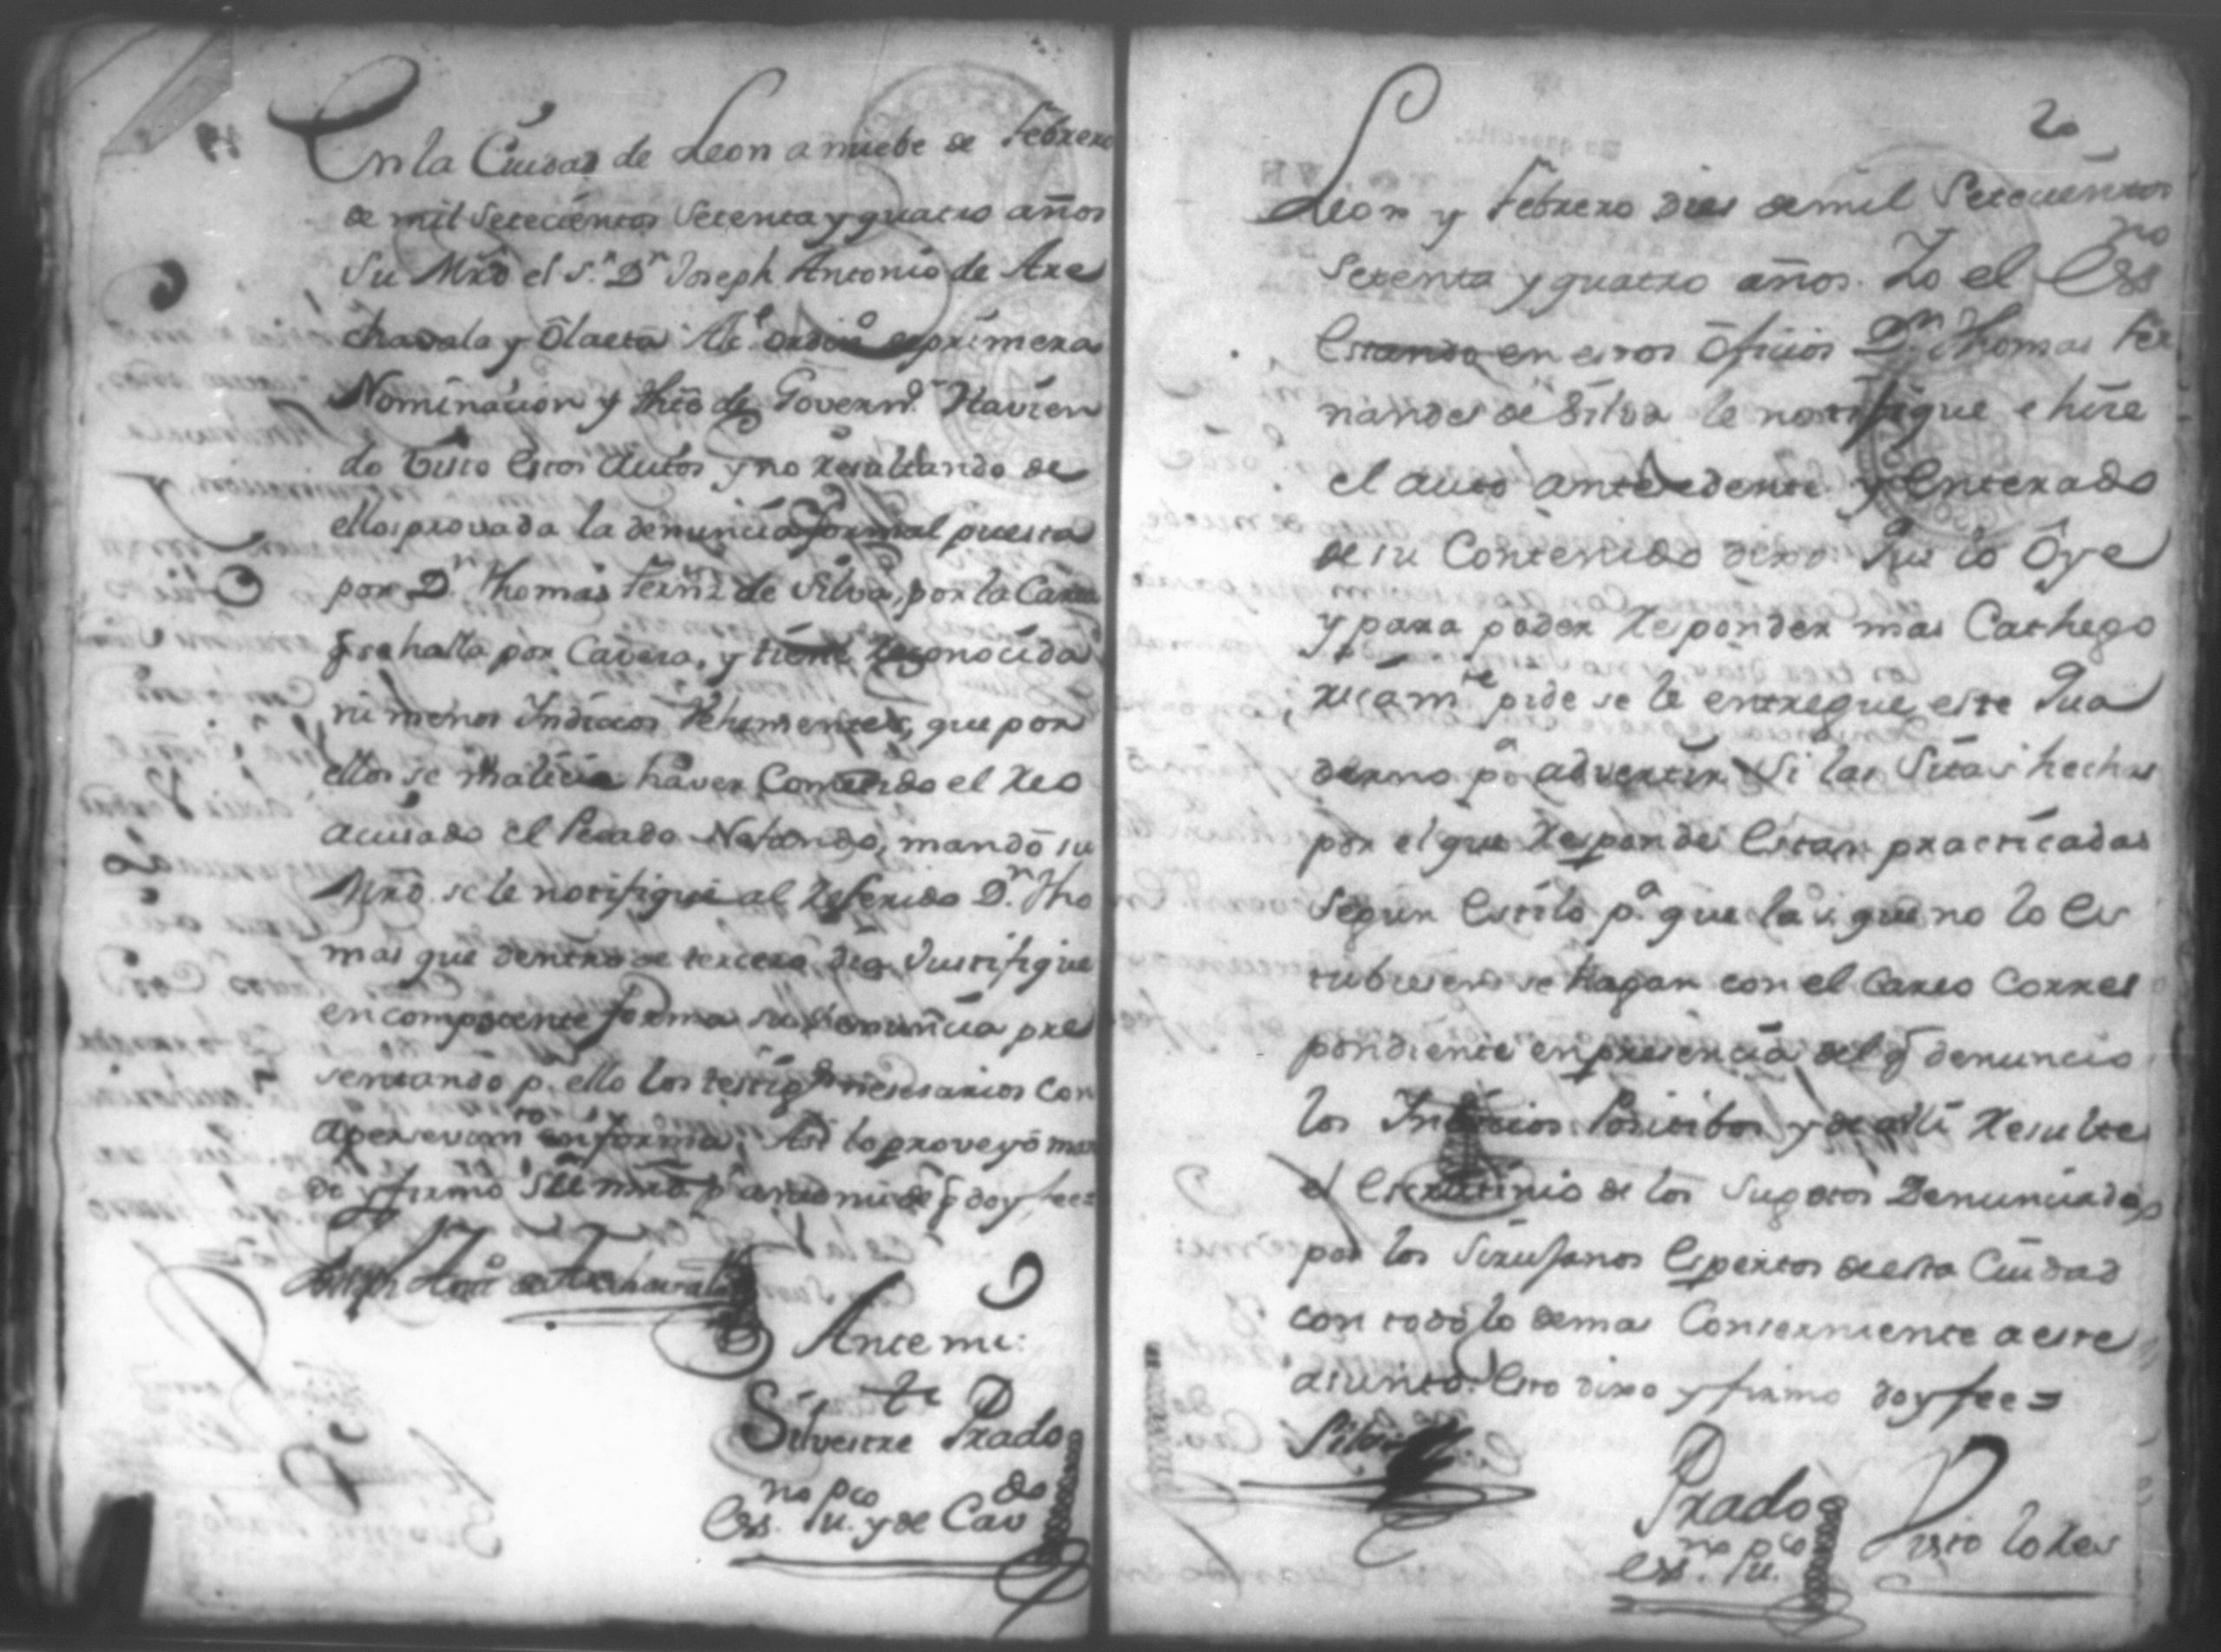 En la Ciudad de Leon a nuebe de Febrero
de mil setecientos setenta y quatro años
Su Mrd el S.r D.n Joseph Antonio de Are
chavala y Olaeta Al.e ordin.o de primera
Nominacion y Thẽ de Govern.or Havien
do visto estos autos y no resultando de
ellos provada la denuncia formal puesta
por D.n Thomas Fern.z de Silva, por la Carta
q̃ se halla por Cavesa, y tiene reconocida
ni menos Indicios Vehementes, que por
ellos se malicie haver Cometido el Reo
acusado el Pecado Nefando, mandó su
Mrd se le notifique al referido D.n Tho
mas que dentro de tercero dia Justifique
en competente forma su denuncia pre
sentando p.a ello los testigos nesesarios con
apersevim.to en forma. Asi lo proveyó man
dó y firmó su mrd p.r ante mi de q̃ doy fee=
Joseph Ant.o de Arechavala
Ante mi:
Silvestre Prado
Ess.no pu.co y de Cav.do
20
Leon y Febrero dies de mil Setecientos
setenta y quatro años. Yo el Ess.no
Estando en estos Oficios D.n Thomas Fer
nandes de Silva le notifique e hise
el auto antesedente y Enterado
de su Contenido dixo: Que lo Oye
y para poder responder mas Cathego
ricam.te pide se le entregue este Qua
derno p.a advertir Si las Sitas hechas
por el que Responde Estan practicadas
segun Estilo p.a que las que no lo Es
tubiesen se hagan con el Careo Corres
pondiente en presencia del q̃ denuncio
los Indicios Positibos y de alli resulte
el Escrutinio de los Sugetos Denunciados
por los Sirujanos Espertos de esta Ciudad
con todo lo demas Conserniente a este
asunto. Esto dixo y firmo doy fee=
Silva
Prado
ess.no pu.co